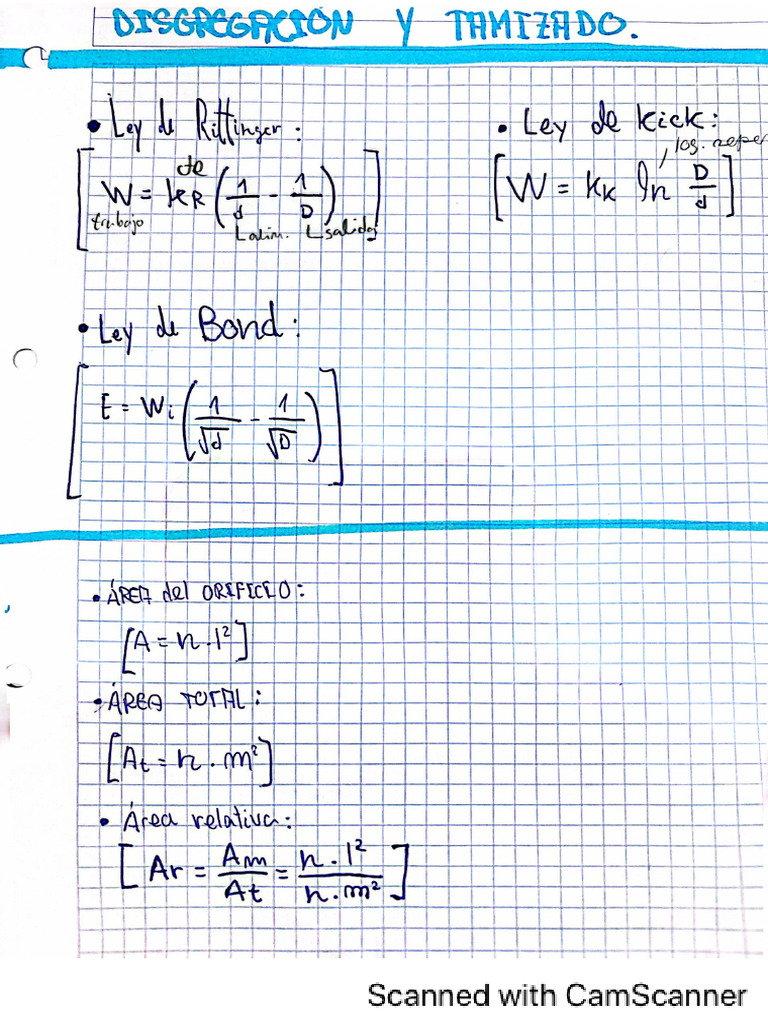 DISGREGACIÓN Y TAMIZADO.
• Ley de Rittinger:
cte
[W = kR (1/d - 1/D)]
trabajo
alim. salida
• Ley de Kick:
log. neper
[W = KK ln D/d]
• Ley de Bond:
[E = Wi (1/√d - 1/√D)]
• ÁREA del ORIFICIO:
[A = n · l²]
• ÁREA TOTAL:
[At = n · m²]
• Área relativa:
[Ar = Am/At = n · l²/n · m²]
Scanned with CamScanner